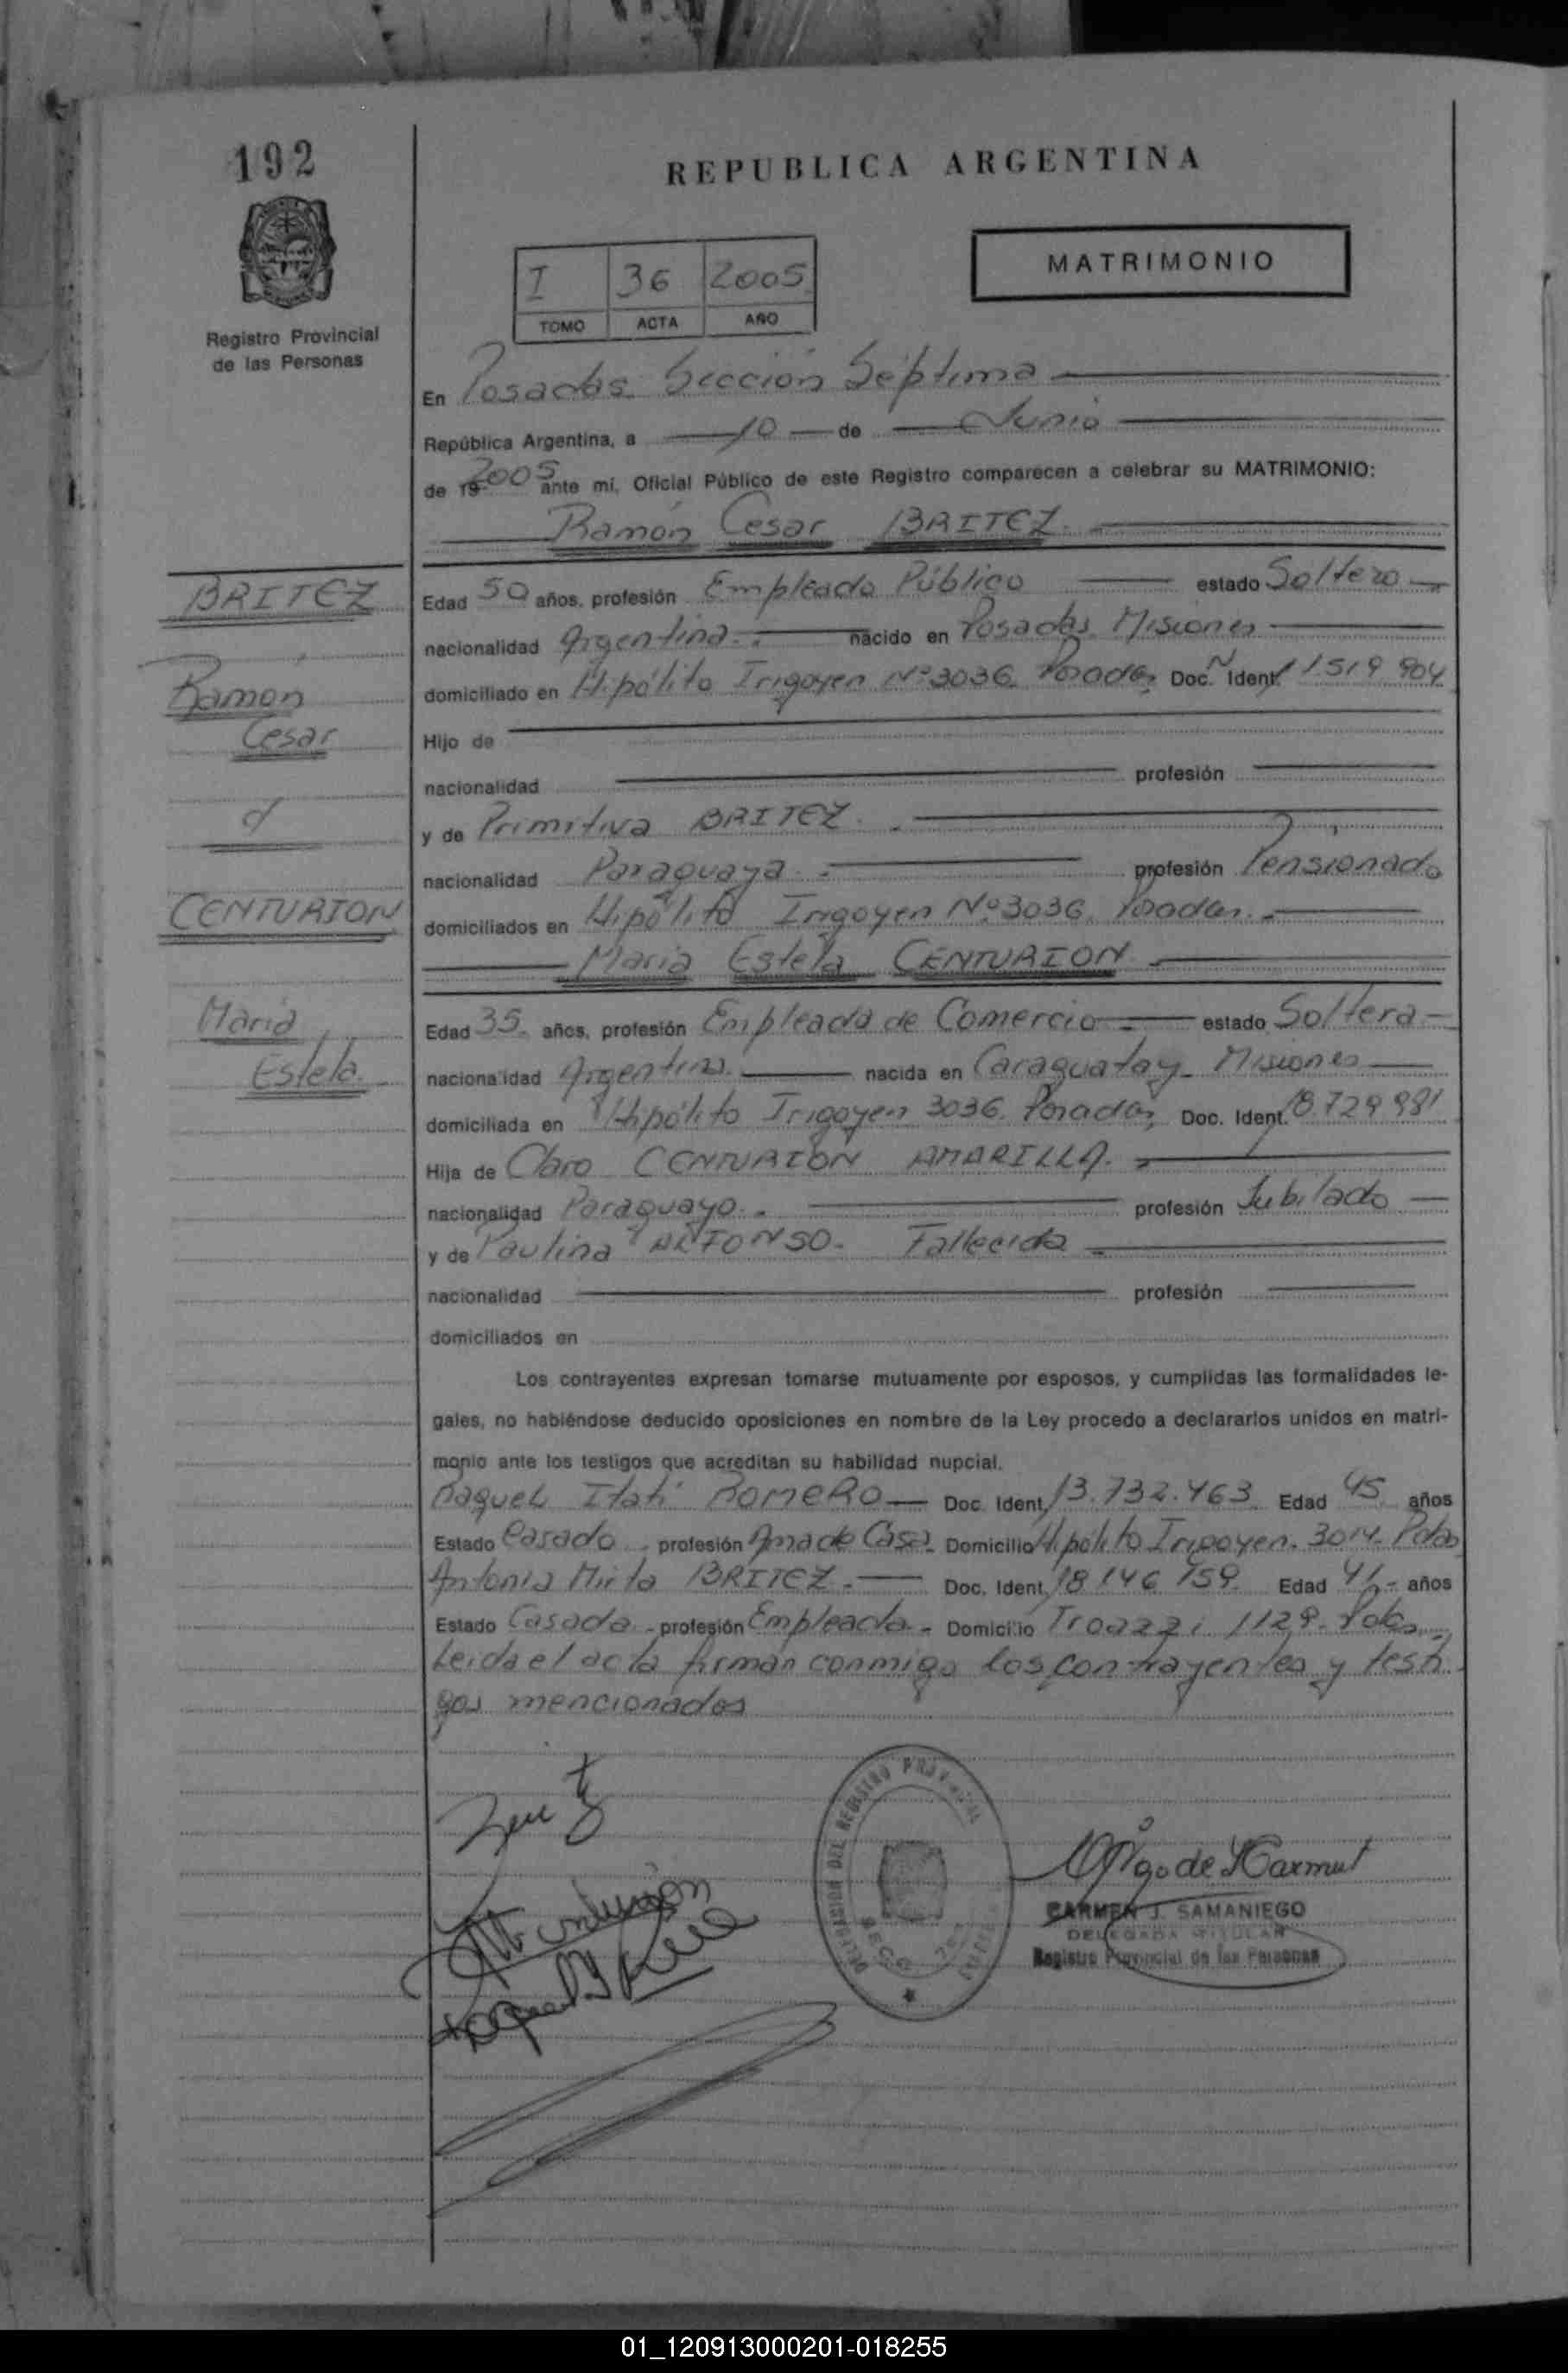 192
REPUBLICA ARGENTINA
MATRIMONIO
I 36 2005
TOMO ACTA AÑO
Registro Provincial
de las Personas
En Posadas Sección Séptima
República Argentina, a 10 de Junio
de 19 2005 ante mí, Oficial Público de este Registro comparecen a celebrar su MATRIMONIO:
Ramón Cesar BRITEZ
BRITEZ
Ramon
Cesar
CENTURION
Maria
Estela
Edad 50 años, profesión Empleado Público estado Soltero
nacionalidad Argentina nacido en Posadas Misiones
domiciliado en Hipólito Irigoyen Nº 3036 Posadas Doc. Ident. 11519 904
Hijo de
nacionalidad profesión
y de Primitiva BRITEZ
nacionalidad Paraguaya profesión Pensionada
domiciliados en Hipólito Irigoyen Nº 3036 Posadas
Maria Estela CENTURION
Edad 35 años, profesión Empleada de Comercio estado Soltera
nacionalidad Argentina nacida en Caraguatay Misiones
domiciliada en Hipólito Irigoyen 3036 Posadas Doc. Ident. 18.729 981
Hija de Claro CENTURION AMARILLA
nacionalidad Paraguayo profesión Jubilado
y de Paulina ALFONSO Fallecida
nacionalidad profesión
domiciliados en
Los contrayentes expresan tomarse mutuamente por esposos, y cumplidas las formalidades le-
gales, no habiéndose deducido oposiciones en nombre de la Ley procedo a declararlos unidos en matri-
monio ante los testigos que acreditan su habilidad nupcial.
Raquel Itatí ROMERO Doc. Ident. 13.732.463 Edad 45 años
Estado Casado profesión Ama de Casa Domicilio Hipólito Irigoyen 3014 Pdas
Antonia Mirta BRITEZ Doc. Ident. 18 146 159 Edad 41 años
Estado Casada profesión Empleada Domicilio 1129 Pdas
Leida el acta firman conmigo los contrayentes y testi
gos mencionados
DELEGACION DEL REGISTRO PROVINCIAL
CARMEN J. SAMANIEGO
DELEGADA TITULAR
Registro Provincial de las Personas
01_120913000201-018255